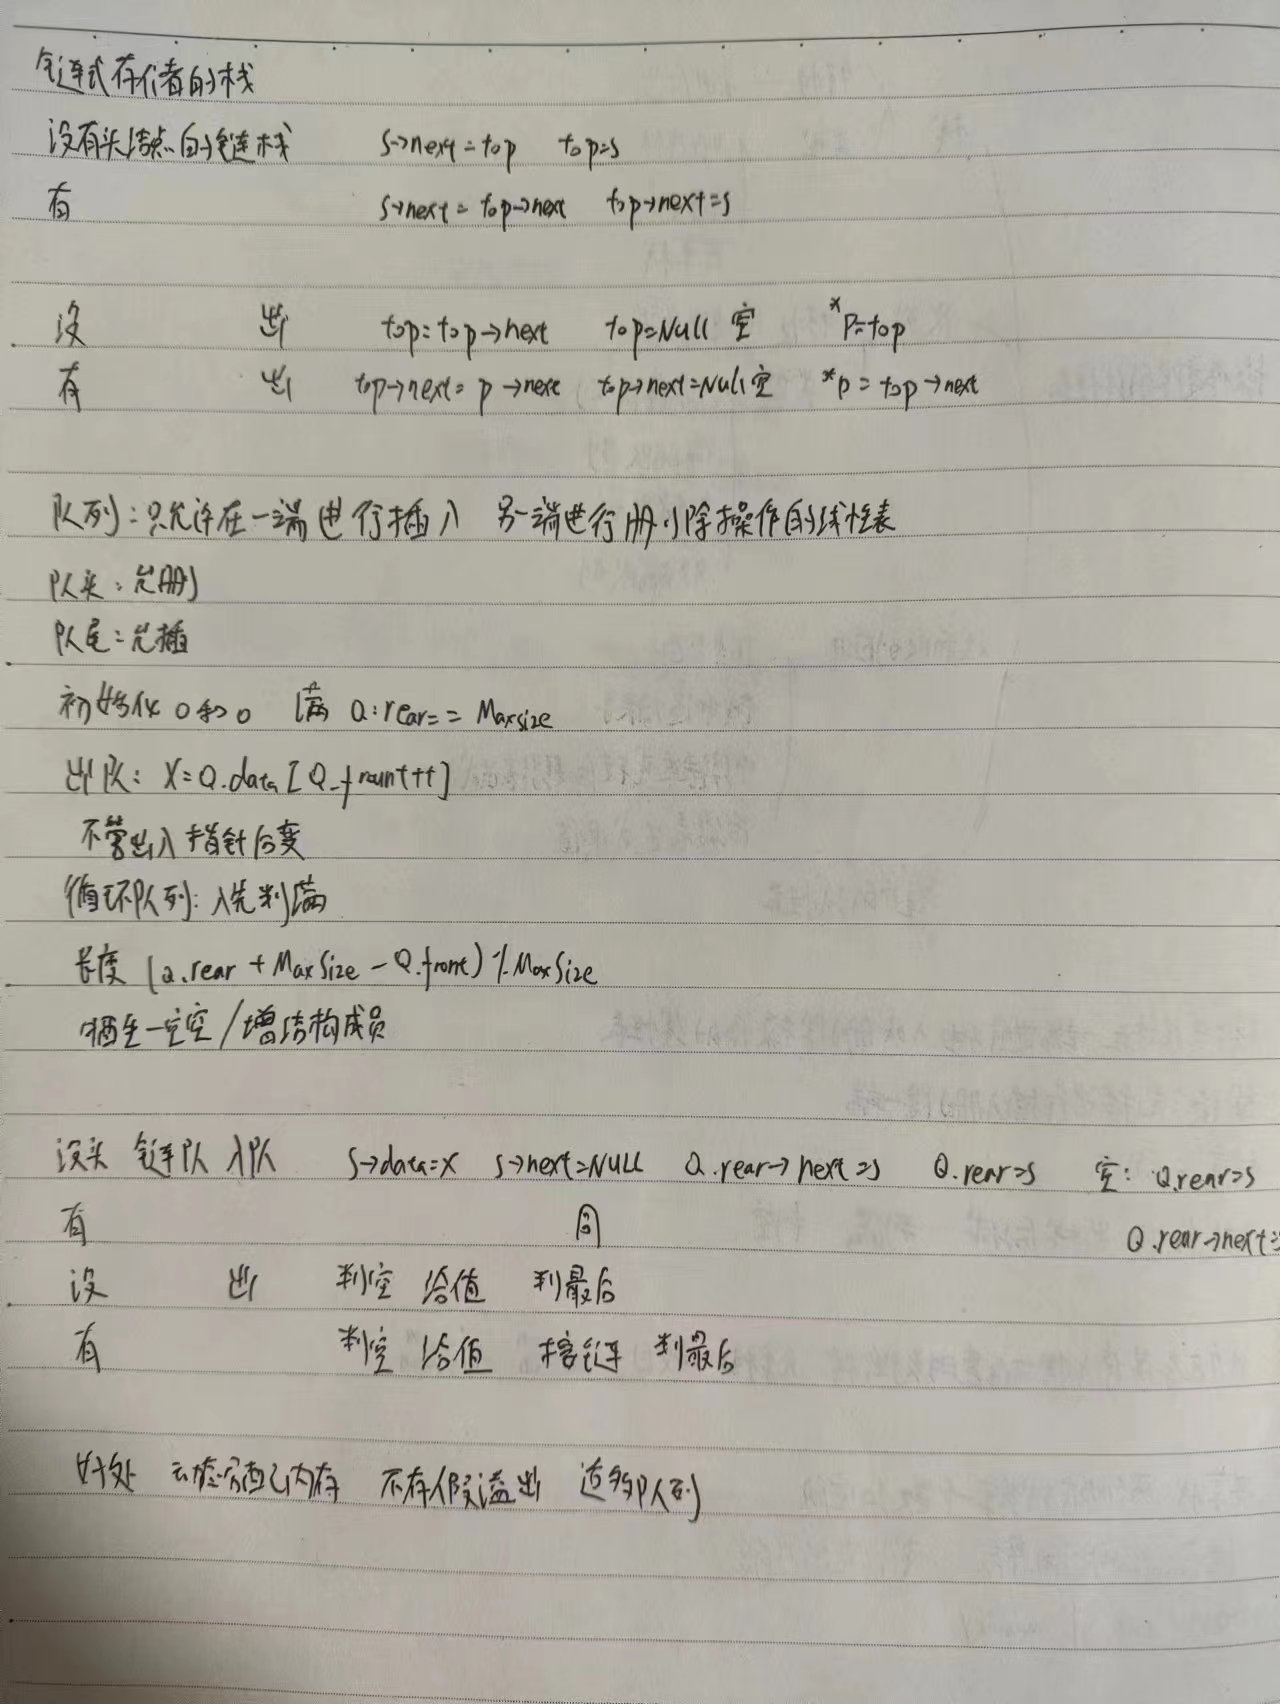 链式存储的栈
没有头结点的链栈 s→next=top top=s
有 s→next=top→next top→next=s
没 出 top=top→next top=Null 空 *p=top
有 出 top→next=p→next top→next=Null空 *p=top→next
队列:只允许在一端进行插入 另一端进行删除操作的线性表
队头:允删
队尾:允插
初始化0和0 满 Q:rear==Maxsize
出队:X=Q.data[Q.frount++]
不管出入指针后变
循环队列:入先判满
长度 (Q.rear+MaxSize-Q.front)%MaxSize
牺牲一空 /增结构成员
没头 链队 入队 s→data=x s→next=NULL Q.rear→next=s Q.rear=s 空:Q.rear=s
Q.rear→next=
有 同
没 出 判空 给值 判最后
有 判空 给值 接链 判最后
好处 内存 不存假溢出 适多队列